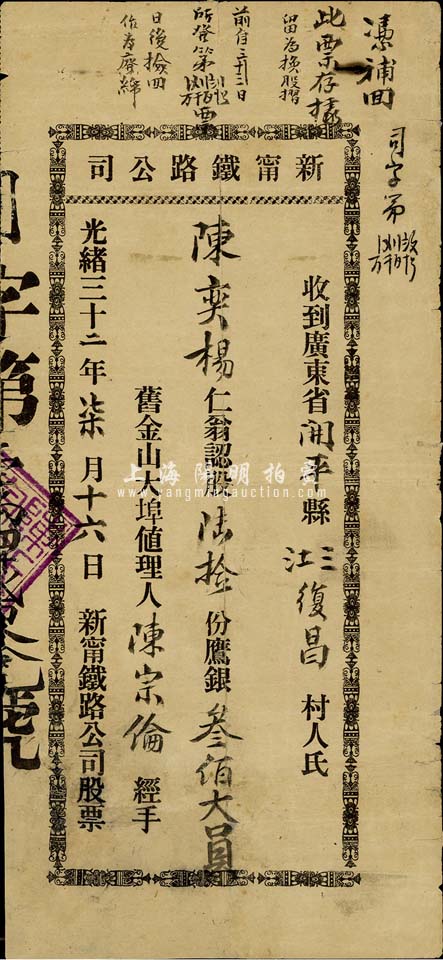 憑補回
此票存據
留為換股摺
前自三十三日
日後撿回
作為廢紙
司字第
新甯鐵路公司
收到廣東省開平縣三江復昌村人氏
陳奕楊仁翁認股陸拾份鷹銀叁佰大員
舊金山大埠值理人陳宗倫經手
光緒三十二年柒月十六日新甯鐵路公司股票
上海陽明拍賣
www.yangmingauction.com